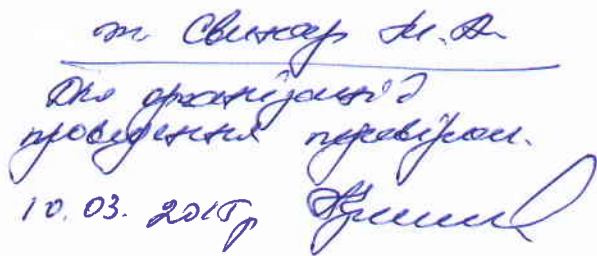 т. Свинар М. А.
Для організації
проведення перевірки.
10.03. 2015р